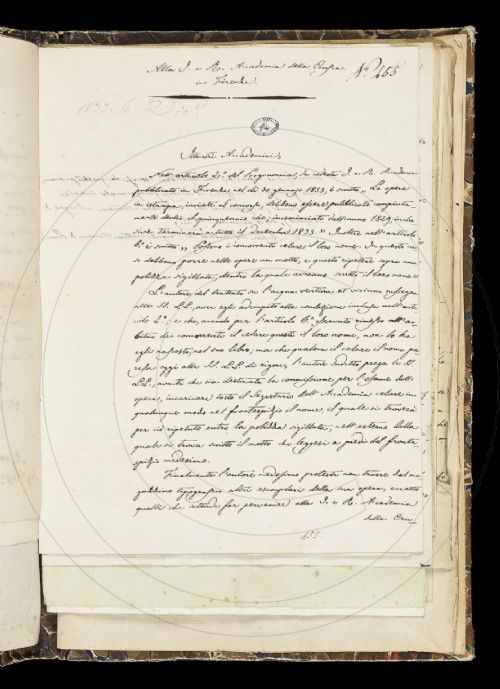 Alla I. e R. Accademia della Crusca
in Firenze.
N.° 455
1833. 6. Dic.
Illustri Accademici,
Nell'articolo 2.° del Programma, da codesta I. e R. Accademia
pubblicato in Firenze nel dì 30 gennajo 1833, è scritto, „ Le opere
in istampa, inviate al concorso, debbono essere pubblicate
nel quinquennio che, incominciato dall'anno 1829 inclu
sive terminerà a tutto il decembre 1833. „ Inoltre nell'articolo
6.° è scritto „ Possono i concorrenti celare il loro nome. In questo caso
si debbono porre nelle opere un motto, e questo ripetere sopra una
polizza sigillata, dentro la quale avranno scritto il loro nome „
L'autore del trattato su l'acqua
alle SS. LL., aver egli adempito alla condizione inclusa nell'arti
colo 2.°; e che, avendo per l'articolo 6.° rimesso all'ar
bitrio dei concorrenti il celare questi il loro nome, non lo ha
egli nascosto, nel suo libro; ma che qualora il celare il nome pa
resse oggi alle SS. LL. di rigore, l'autore suddetto prega le SS.
LL., avanti che sia destinata la commissione per l'esame dell'
opera, incaricare tosto il Segretario dell'Accademia celare in
qualunque modo nel frontespizio il nome, il quale si troverà
per ciò ripetuto entro la polizza sigillata, nell'esterno della
quale si trova scritto il motto che leggesi a piedi del fronte
spizio medesimo.
Finalmente l'autore medesimo protesta non trarre dal ma
gazzino tipografico altri esemplari della sua opera, eccetto
quelli che intende far pervenire alla I. e R. Accademia
della Cru-
455.